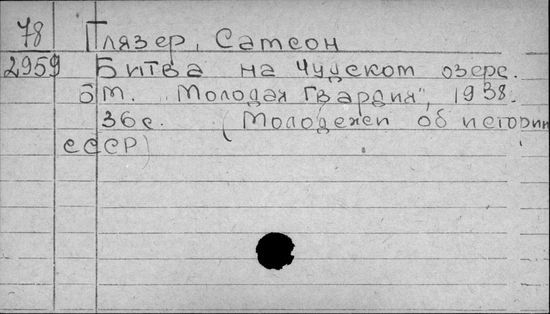 78 Глязер, Самсон
2959 Битва на Чудском озере.
б м. "Молодая Гвардия", 1938.
36 с. (Молодежи об истории
СССР)